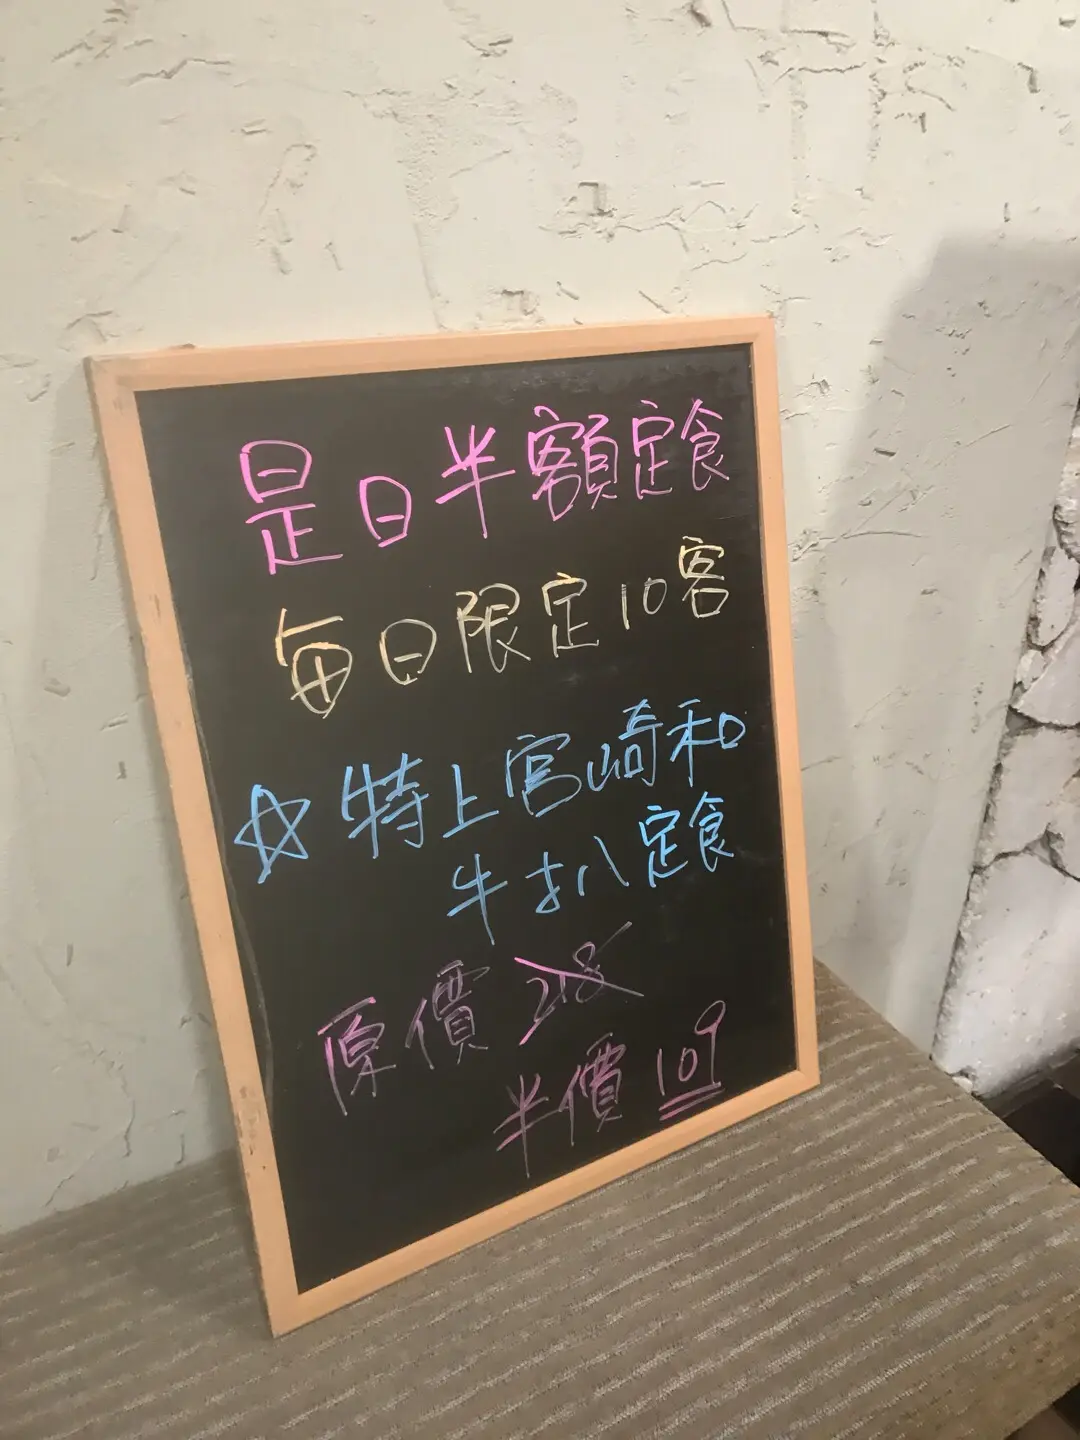 是日半額定食
每日限定10客
☆特上宮崎和
牛扒定食
原價 218
半價 109